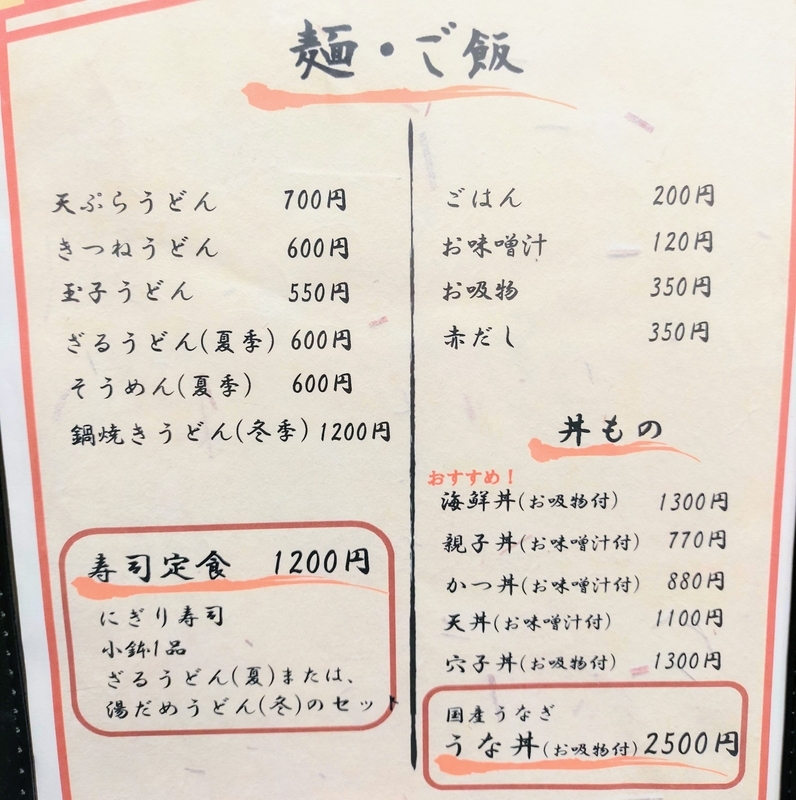 麺・ご飯
天ぷらうどん 700円
きつねうどん 600円
玉子うどん 550円
ざるうどん(夏季) 600円
そうめん(夏季) 600円
鍋焼きうどん(冬季) 1200円
寿司定食 1200円
にぎり寿司
小鉢1品
ざるうどん(夏)または、
湯だめうどん(冬)のセット
ごはん 200円
お味噌汁 120円
お吸物 350円
赤だし 350円
丼もの
おすすめ!
海鮮丼(お吸物付) 1300円
親子丼(お味噌汁付) 770円
かつ丼(お味噌汁付) 880円
天丼(お味噌汁付) 1100円
穴子丼(お吸物付) 1300円
国産うなぎ
うな丼(お吸物付) 2500円